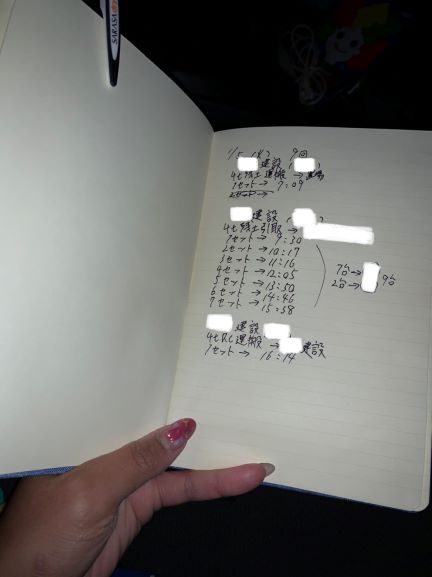 SARASA
1/5 (火) 9回
建設 (
4t残土運搬 →
1セット → 7:09
2セット →
建設 (
4t残土引取 →
1セット → 9:30
2セット → 10:17
3セット → 11:16
4セット → 12:05
5セット → 13:50
6セット → 14:46
7セット → 15:38
7台 →
2台 →
9台
建設
4t RC運搬 → 建設
1セット → 16:14